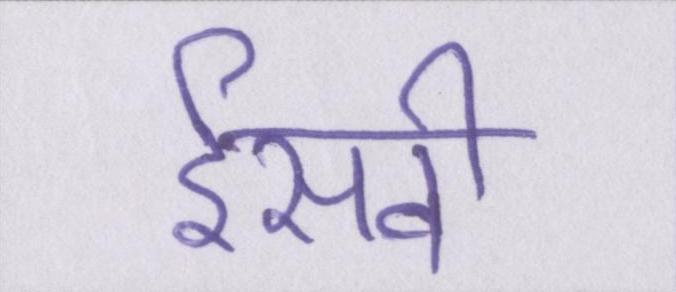 ईसवी